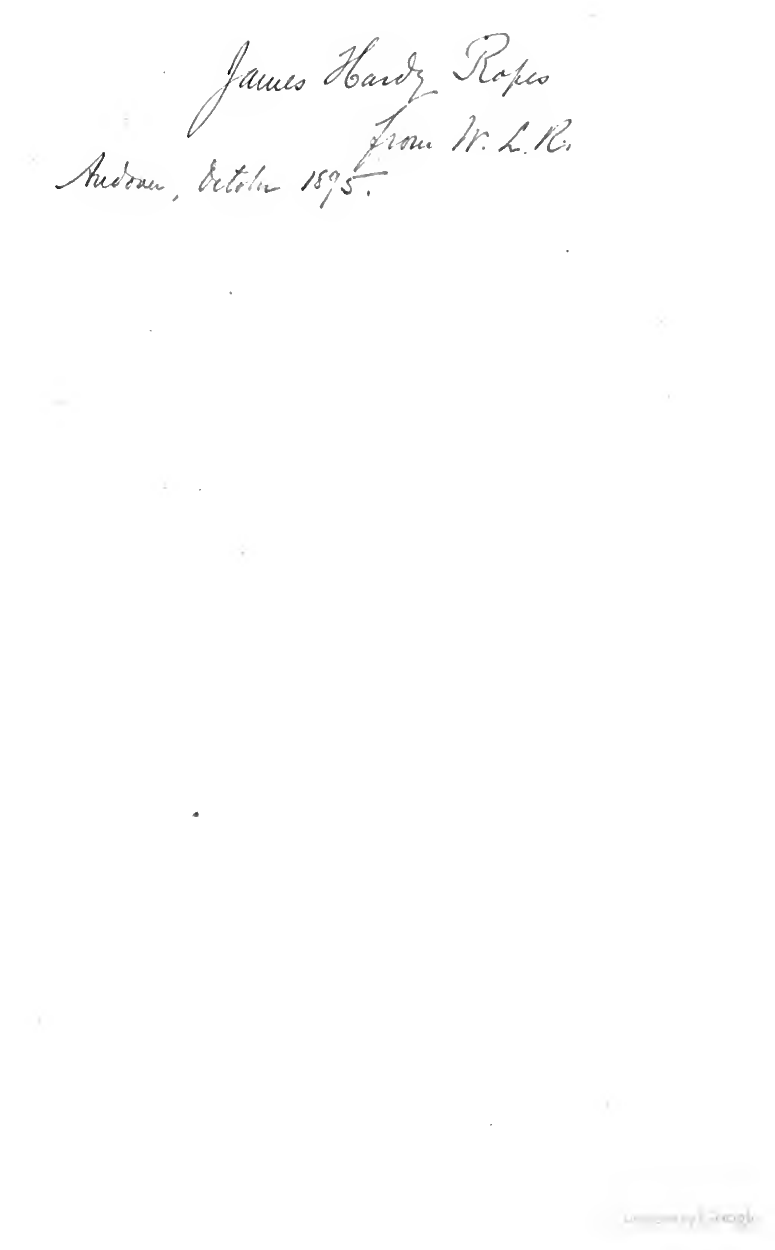 James Hardy Ropes
from W. L. R.
Andover, October 1895.
Digitized by Google